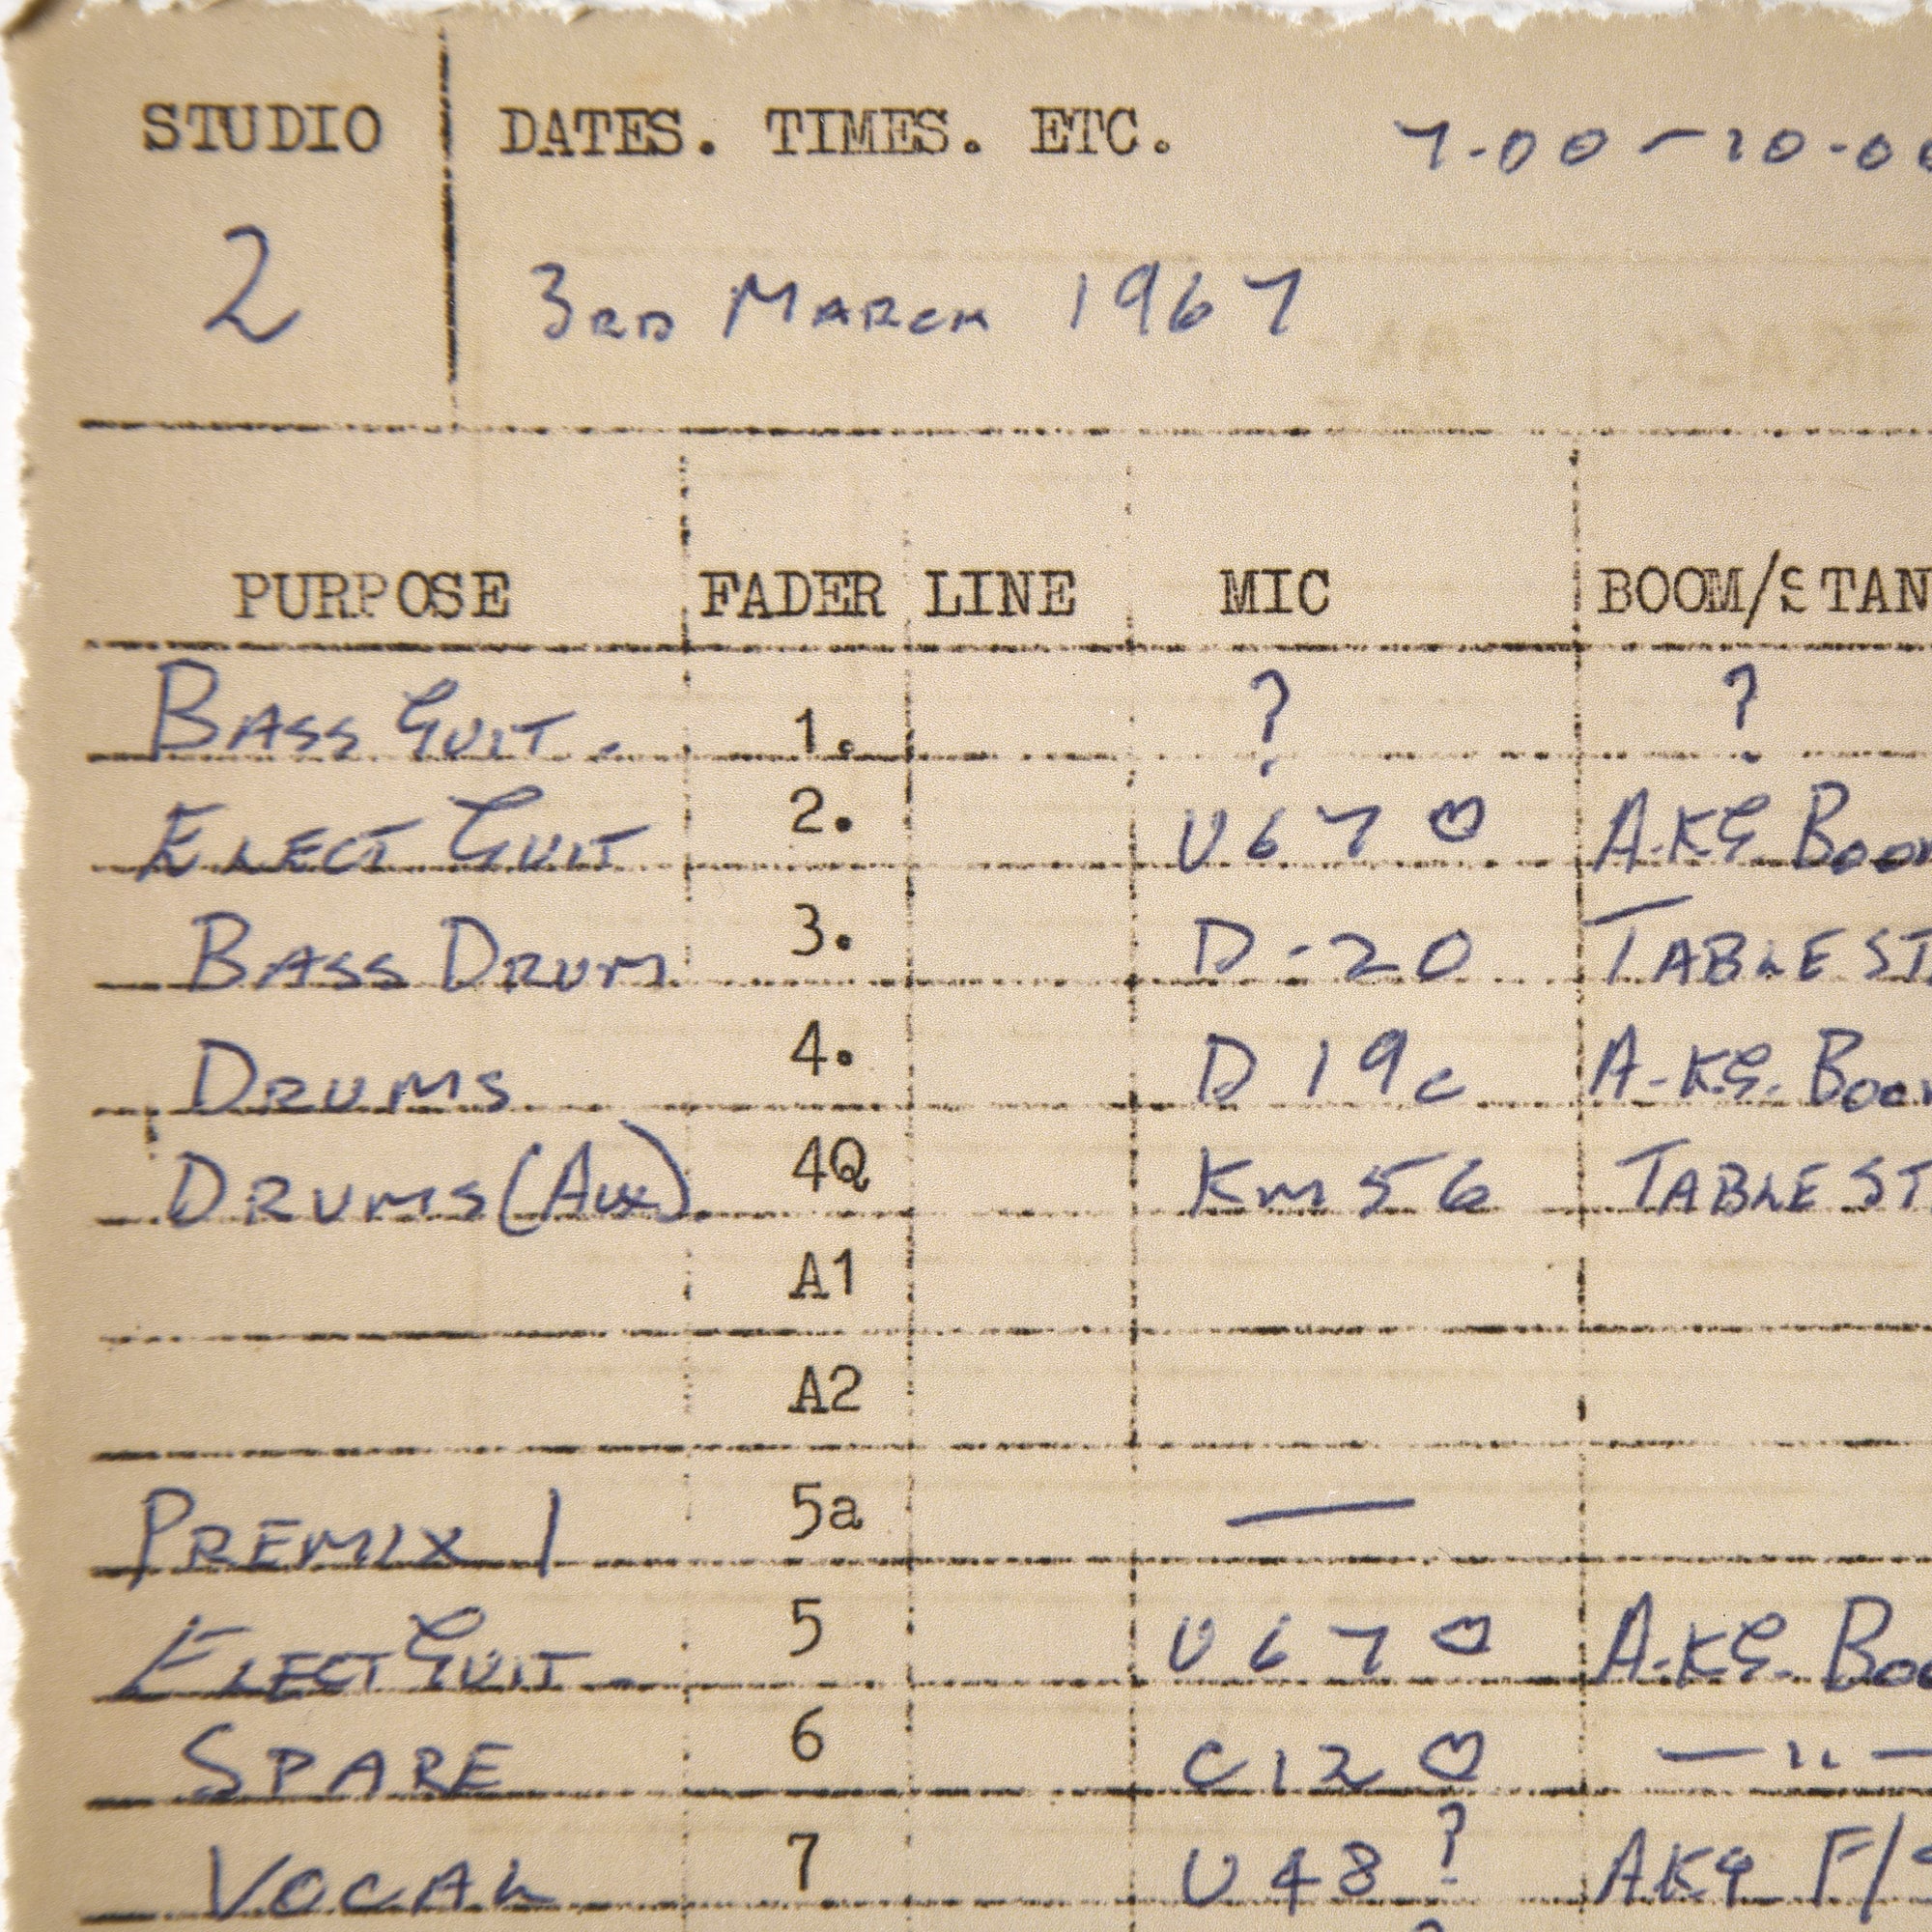 STUDIO DATES. TIMES. ETC. 7.00 - 10.00
2 3RD MARCH 1967
PURPOSE FADER LINE MIC BOOM/STAN
BASS GUIT. 1. ? ?
ELECT GUIT 2. U67 A.KG BOOM
BASS DRUM 3. D-20 TABLE ST
DRUMS 4. D19c A-KG. BOOM
DRUMS (AUX). 4Q KM56 TABLE ST
A1
A2
PREMIX 1 5a —
ELECT GUIT. 5 U67 A.KG. BOO
SPARE 6 C12 — " —
VOCAL 7 U48 ? AKG F/S